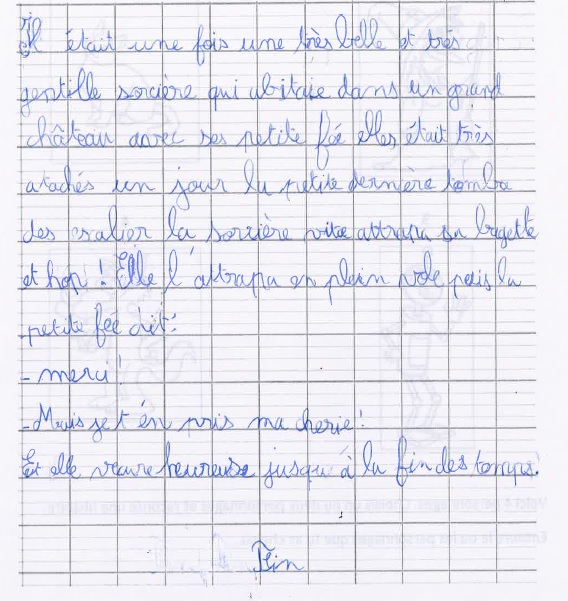 Il était une fois une très belle et très
gentille sorcière qui abitaie dans un grand
château avec ses petite fée elles était très
atachés un jour la petite dernière tomba
des escalier la sorcière vite attrapa sa bagette
et hop ! Elle l'attrapa en plein vole puis la
petite fée dit :
- merci !
- Mais je t'én pris ma cherie !
Et elle vécure heureuse jusqu'à la fin des temps.
Fin